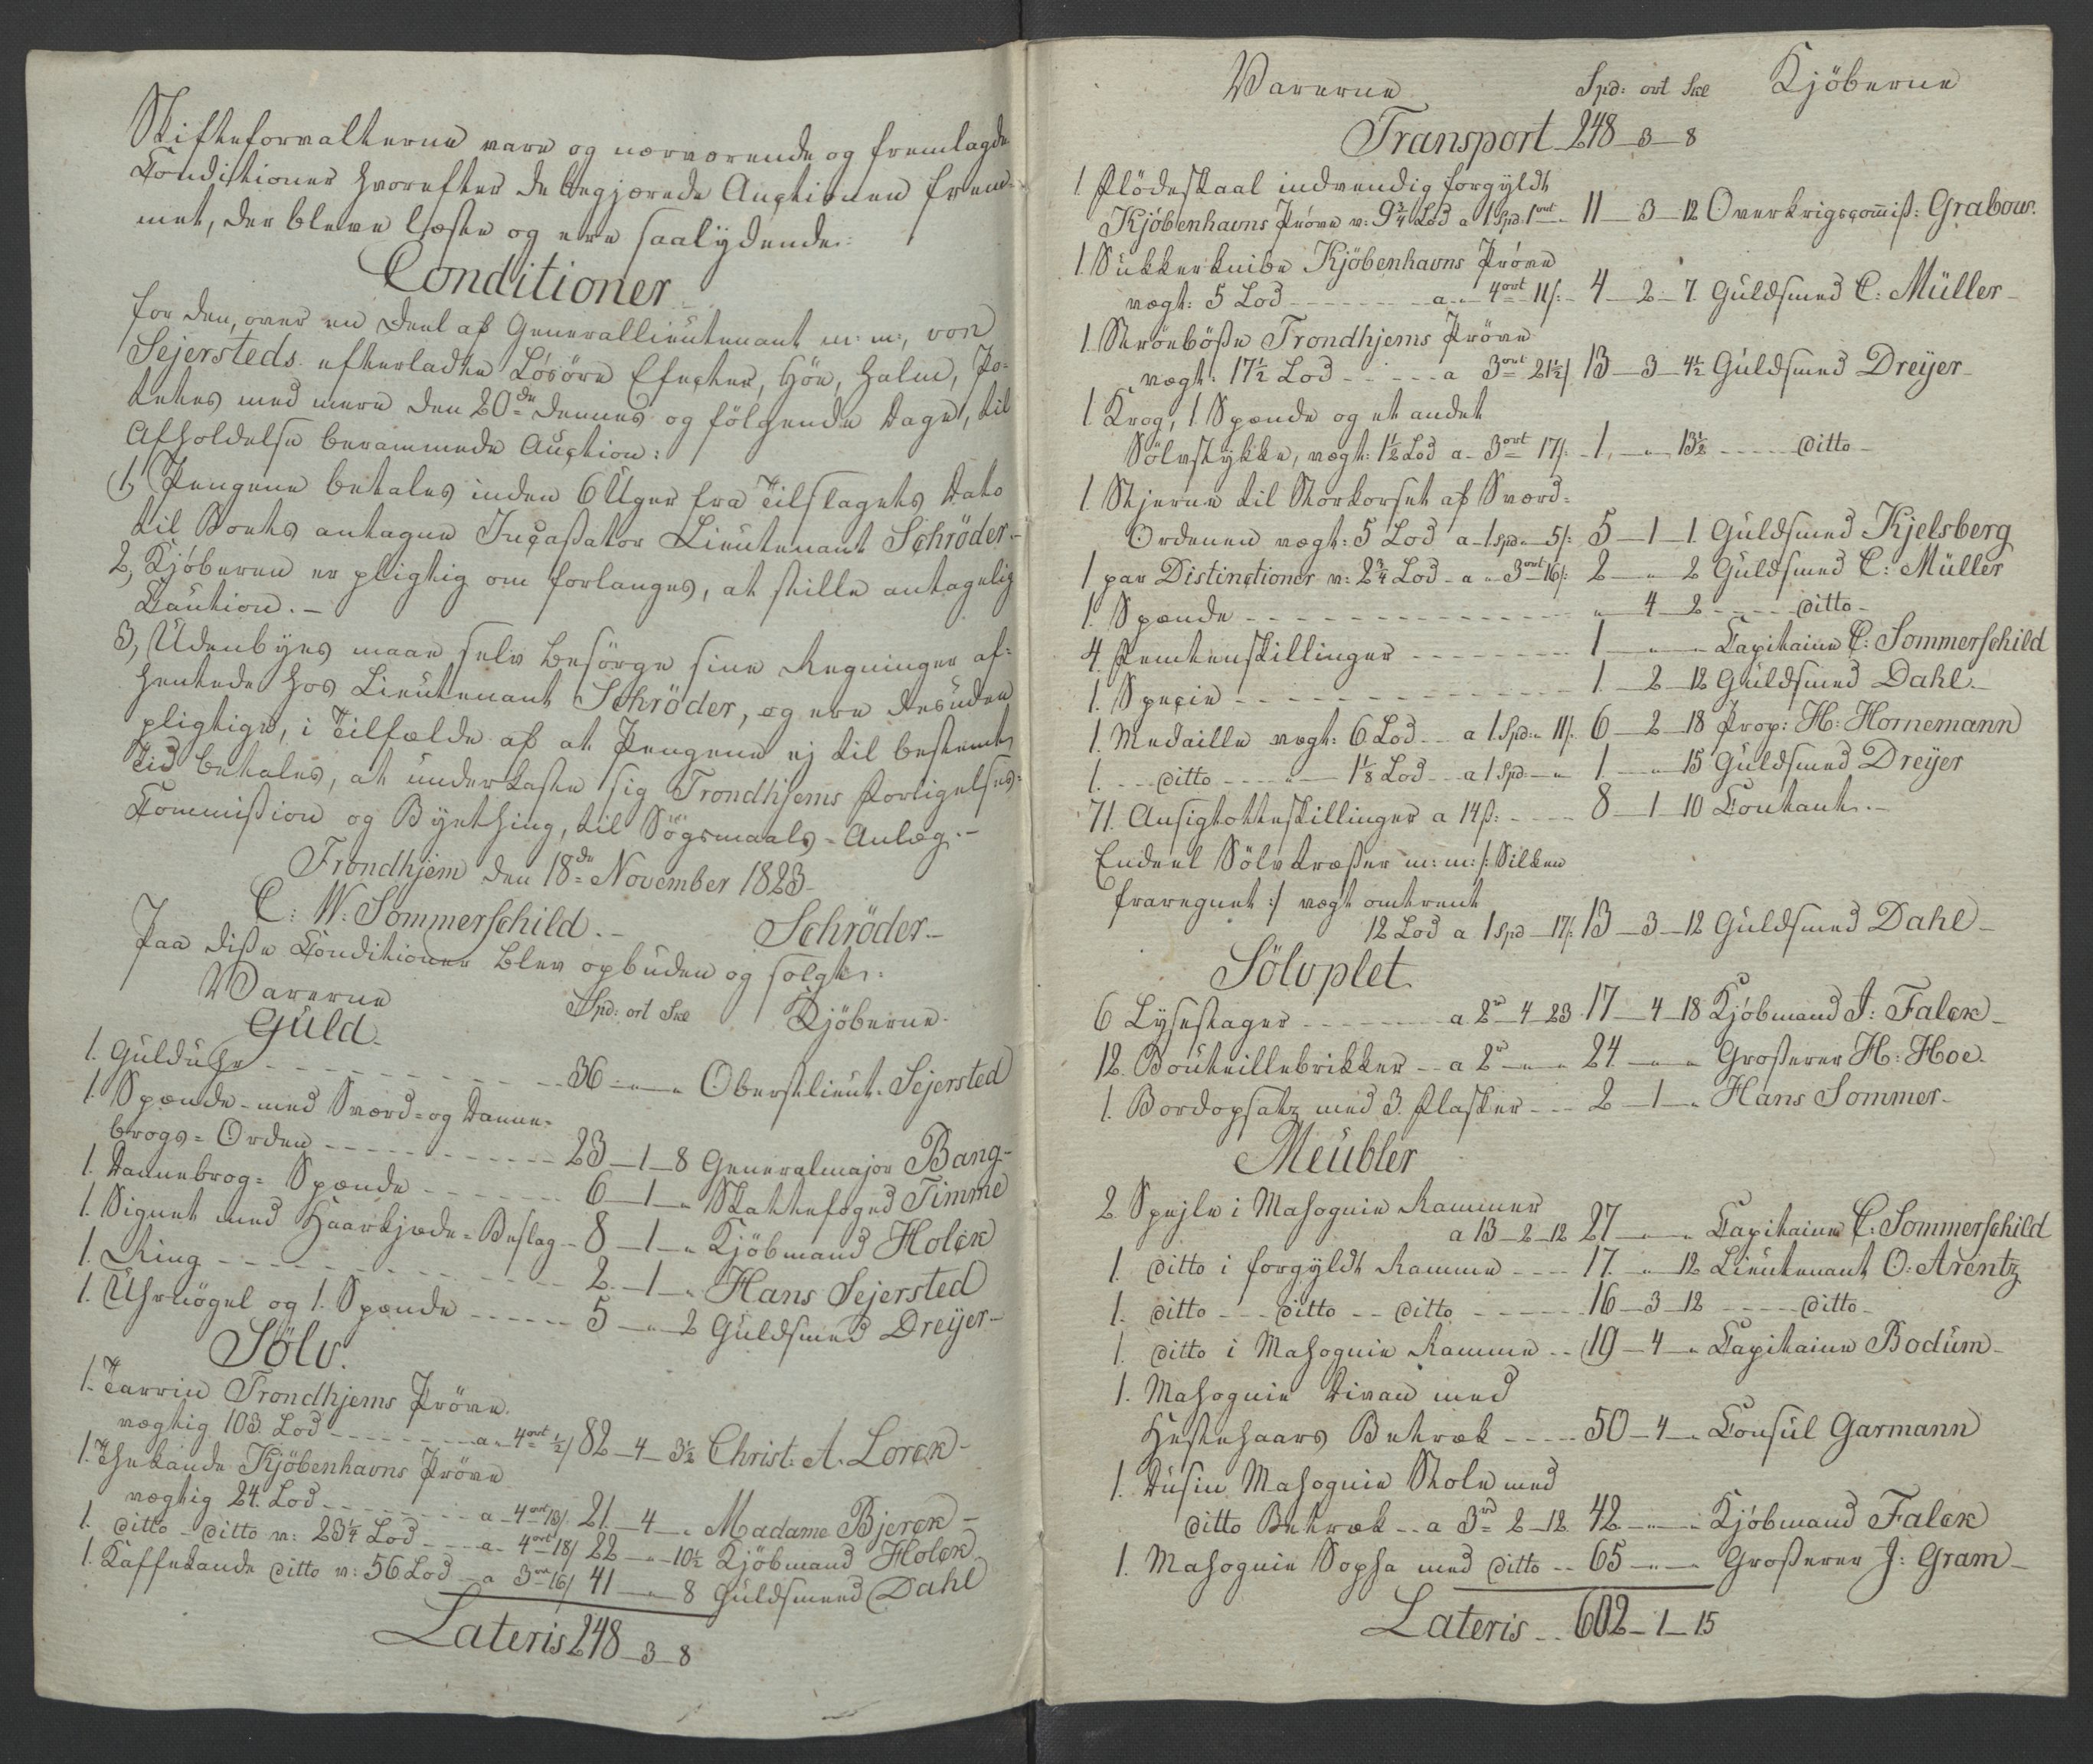 Skifteforvalterne vare og nærværende og fremlagde
Conditioner hvorefter de begjærede Auctionen frem-
met, der bleve læste og ere saalydende:
Conditioner
for den, over en Deel af Generallieutenant m: m:, von
Sejersteds efterladte Løsøre Efecter, Höe, Halm, Po-
tetes med mere den 20de dennes og fölgende Dage, til
Afholdelse berammede Auction:
1, Pengene betales inden 6 Uger fra Tilslagets Dato
til Boets antagne Incaßator Lieutenant Schröder.-
2, Kjöberen er pligtig om forlanges, at stille antagelig
Caution.-
3, Udenbyes maae selv besörge sine Regninger af-
hentede hos Lieutenant Schröder, og ere desuden
pligtige, i Tilfælde af at Pengene ej til bestemt
Tid betales, at underkaste sig Trondhjems Forligelses-
Commißion og Byething, til Sögsmaals-Anlæg.-
Trondhjem den 18de November 1823-
C: W: Sommerschild.- Schröder-
Paa diße Conditioner blev opbuden og solgt:
Varerne Spd: ort Sk Kjöberne.
Guld
1. Gulduhr - - - 36 - „ - „ Oberstlieut. Sejersted
1. Spænde - med Sværd- og Danne-
brogs-Orden - - - 23 - 1 - 8 Generalmajor Bang-
1. Dannebrog- Spænde - - - 6 - 1 - „ Skattefoged Timme
1. Signet med Haarkjæde-Beslag - - 8 - 1 - „ Kjöbmand Holck
1. Ring - - - 2 - 1 - „ Hans Sejersted
1. Uhrnögel og 1. Spænde - - - 5 - „ - 2 Guldsmed Dreyer-
Sölv.
1. Tarrin Trondhjems Pröve.
vægtig 103 Lod - - - a „ 4ort ½/ 82 - 4 - 3½ Christ: A. Lorck-
1. Thekande Kjöbenhavns Pröve
vægtig 24. Lod - - - a - 4ort 13/ 21 - 4 - „ Madame Bjerck-
1. ditto - ditto v: 23¼ Lod - - a - 4ort 18/ 22 - „ - 10½ Kjöbmand Holck
1. Kaffekande ditto v: 56 Lod - a 3ort 16/ 41 - „ - 8 Guldsmed Dahl
Lateris 248 - 3 - 8
Varerne Spd: ort Sk Kjöberne
Transport 248 - 3 - 8
1 Flödeskaal indvendig forgyldt
Kjöbenhavns Pröve v: 9¾ Lod a 1 Spd. 1ort 11 - 3 - 12 Overkrigscom̅iß: Grabow.
1. Sukkerknibe Kjöbenhavns Pröve
vægt: 5 Lod - - - a „ 4ort 11/: 4 - 2 - 7 Guldsmed C: Müller-
1. Ströebößse Trondhjems Pröve
vægt: 17½ Lod - - - a 3ort 21½/ 13 - 3 - 4½ Guldsmed Dreyer-
1 Krog, 1 Spænde og et andet
Sölvstykke, vægt: 1½ Lod a - 3ort 17/: 1. - „ 13½ - - - ditto-
1 Stjerne til Storkorset af Sværd-
Ordenen vægt: 5 Lod a 1 Spd „ 5/: 5 - 1 - 1 Guldsmed Kjelsberg
1 par Distinctioner v: 2¾ Lod - a „ 3ort 16/: 2 - „ 2 Guldsmed C: Müller
1. Spænde - - - „ 4 - 2 - - - ditto-
4. Femtenskillinger - - - 1 - „ - „ Capitaine C: Sommerschild
1. Specie - - - 1. - 2 - 12 Guldsmed Dahl-
1. Medaille vægt: 6 Lod - - a 1 Spd: „ 11/. 6 - 2 - 18 Prop: H: Hornemann
1. - - ditto - - „ - 1⅛ Lod - - a 1 Spd: - „ 1. - „ 15 Guldsmed Dreyer
71. Ansigtotteskillinger a 14ß: - - - 8 - 1 - 10 Contant.-
Endeel Sölvtræßer m: m: /: Silken
fraregnet :/ vægt omtrent
12 Lod a 1 Spd - 17/: 13 - 3 - 12 Guldsmed Dahl-
Sölvplet
6 Lysestager - - - a 2rd 4 - 23 17 - 4 - 18 Kjöbmand J: Falck-
12. Bouteillebrikker - - a 2rd - „ - „ 24 - „ - „ Großerer H: Hoe.
1. Bordopsatz med 3. Flasker - - - 2 - 1 - „ Hans Sommer-
Meubler
2 Spejle i Mahognie Rammer
a 13 - 2 - 12 27 - „ - „ Capitaine C: Sommerschild
1. ditto i forgyldt Ramme - - - 17 - „ 12 Lieutenant O: Arentz
1. ditto - - ditto - - ditto - - - 16 - 3 - 12 - - - ditto-
1. ditto i Mahognie Ramme - - 19 - 4 - „ Capitaine Bodum-
1. Mahognie Divan med
Hestehaars Betræk - - - 50 - 4 - „ Consul Garmann
1. Dusin Mahognie Stole med
ditto Betræk - - a 3rd 2 - 12 42 - „ - „ Kjöbmand Falck
1. Mahognie Sopha med ditto - - 65 - „ - „ Großerer J: Gram-
Lateris - - 602 - 1 - 15